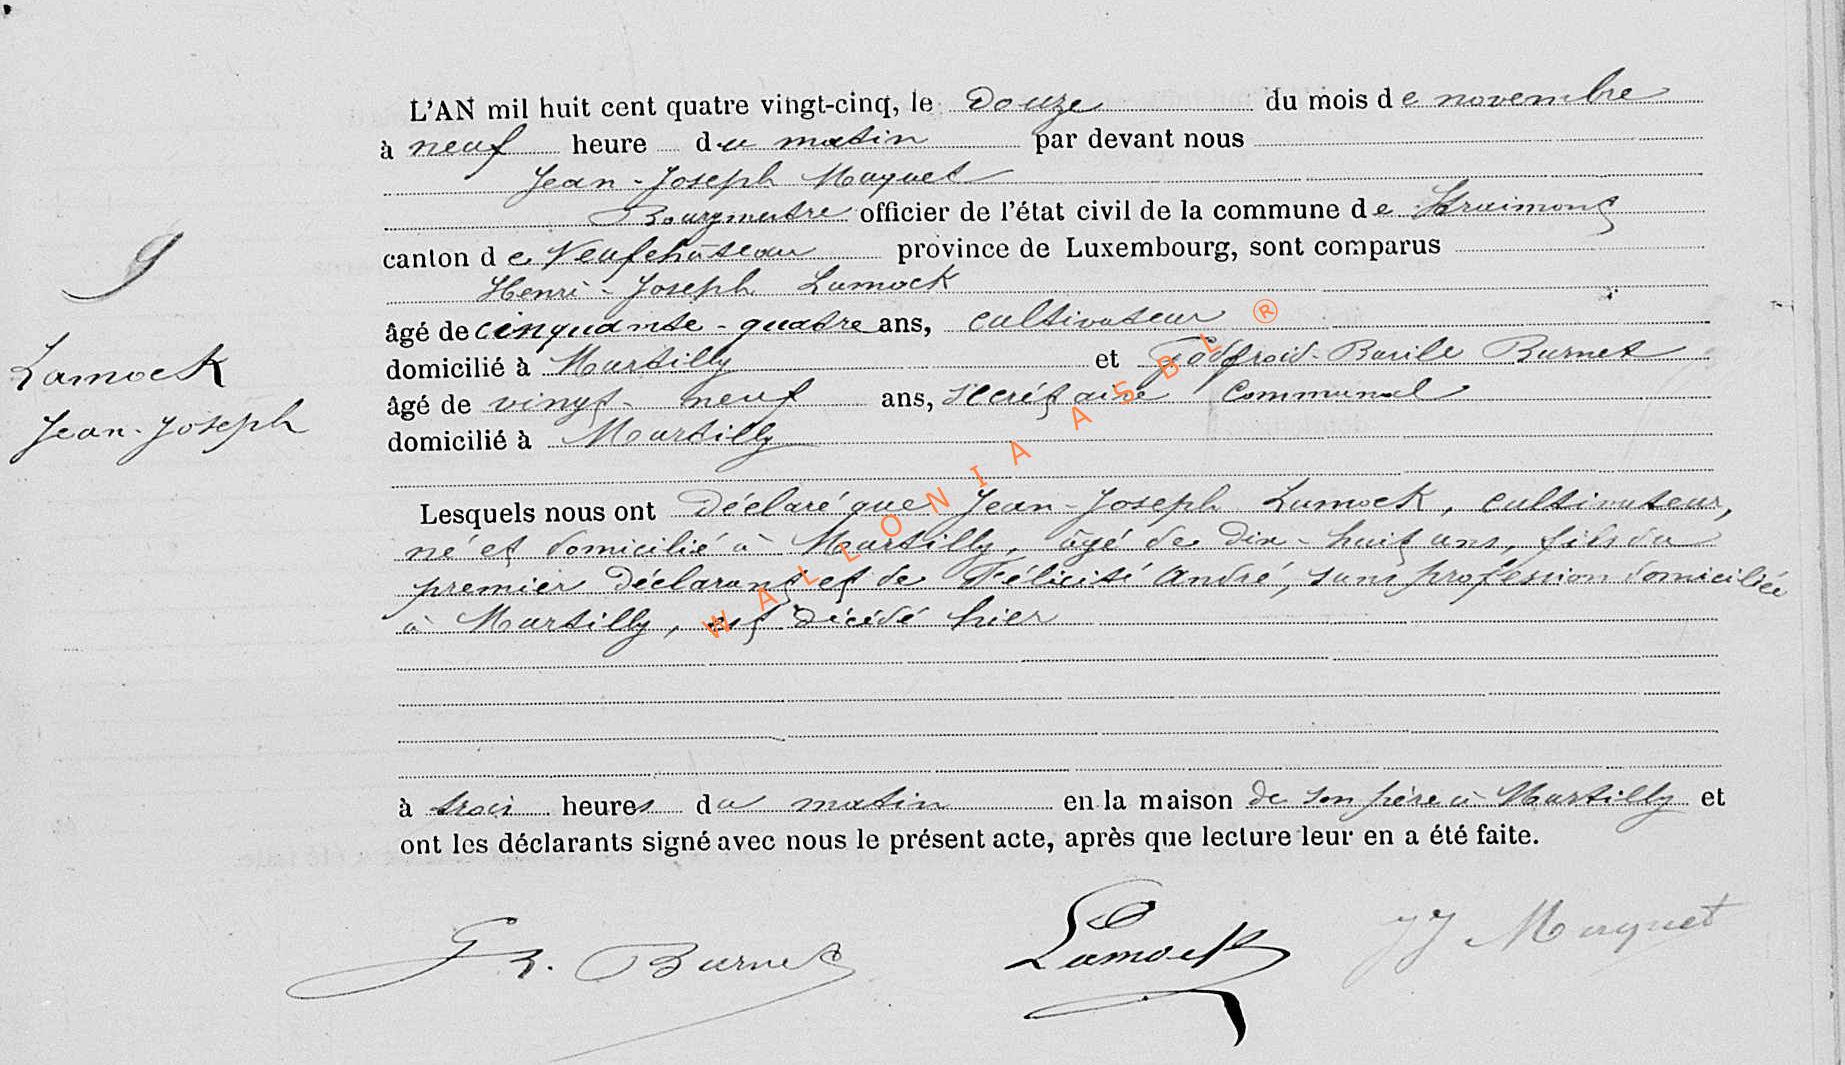 L'AN mil huit cent quatre vingt-cinq, le douze du mois de novembre
à neuf heure du matin par devant nous
Jean-Joseph Maquet
Bourgmestre officier de l'état civil de la commune de Straimont
canton de Neufchâteau province de Luxembourg, sont comparus
Henri-Joseph Lamock
âgé de cinquante-quatre ans, cultivateur
domicilié à Martilly et Godfroid-Basile Burnet
âgé de vingt-neuf ans, secrétaire communal
domicilié à Martilly
9
Lamock
Jean-Joseph
Lesquels nous ont déclaré que Jean-Joseph Lamock, cultivateur,
né et domicilié à Martilly, âgé de dix-huit ans, fils du
premier déclarant et de Félicité André, sans profession domiciliée
à Martilly, est décédé hier
à trois heures du matin en la maison de son père à Martilly et
ont les déclarants signé avec nous le présent acte, après que lecture leur en a été faite.
G B. Burnet Lamock JJ Maquet
WALLONIA ASBL ®